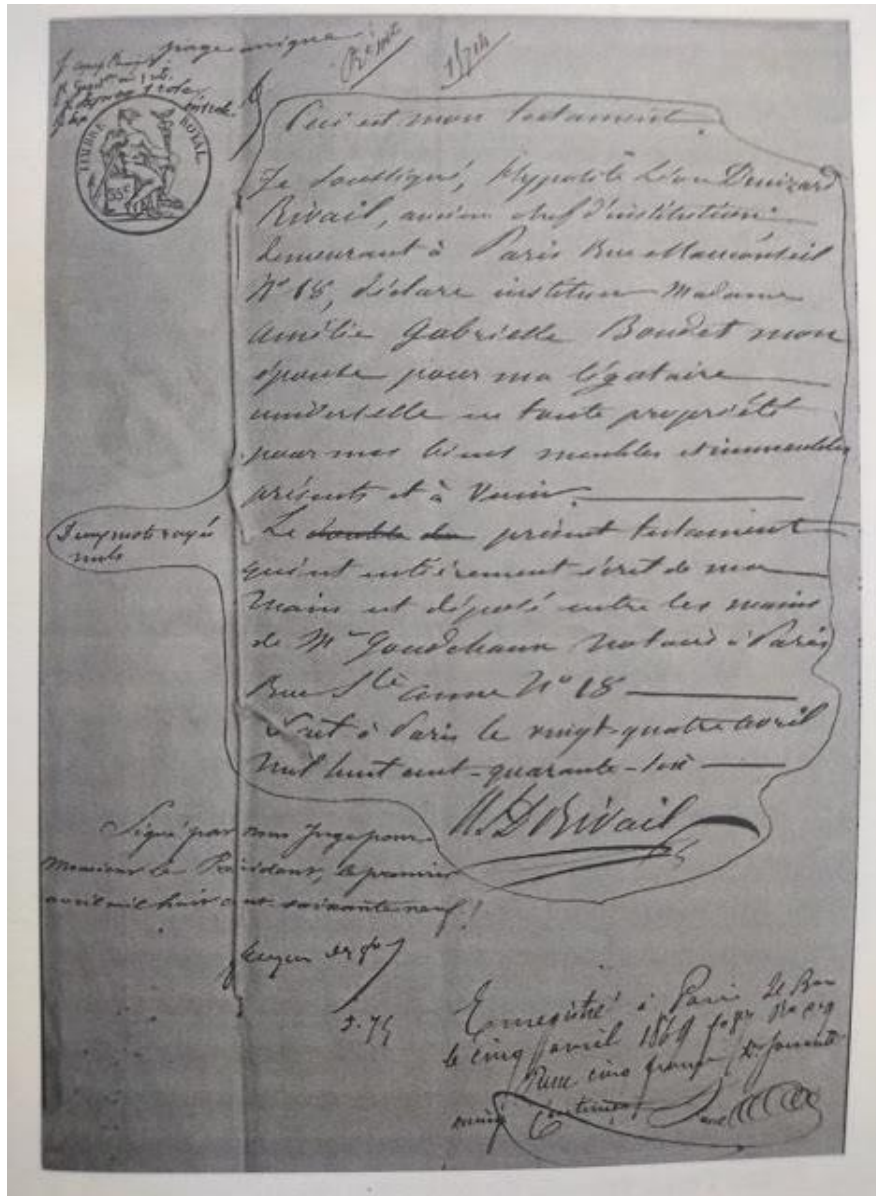 page unique
TIMBRE ROYAL
35c
Ceci est mon testament.
Je soussigné, Hypolite Léon Denizard
Rivail, ancien chef d'institution
demeurant à Paris Rue Mauconseil
N° 18, déclare instituer Madame
Amélie Gabrielle Boudet mon
épouse pour ma légataire
universelle en toute propriété
pour mes biens meubles et immeubles
présents et à venir.
Le double du présent testament
qui est entièrement écrit de ma
main est déposé entre les mains
de Me Goudchaux Notaire à Paris
Rue Ste anne N° 18
Fait à Paris le vingt-quatre avril
mil huit cent-quarante-six
HLDRivail
Deux mots rayés
nuls
Signé par nous Juge pour
Monsieur le Président, le premier
avril mil huit cent soixante neuf
5.75
Enregistré à Paris
le cinq avril 1869
Reçu cinq francs
centimes